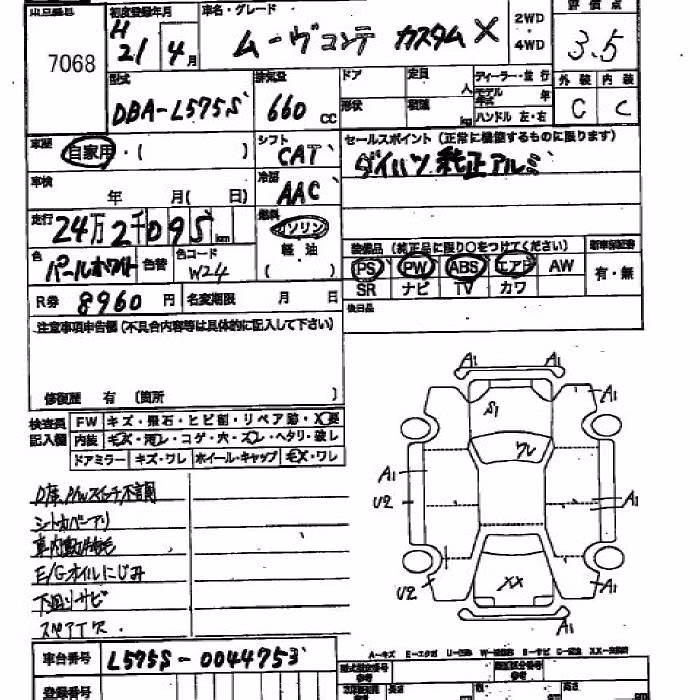 出品番号 初度登録年月 車名・グレード 2WD・4WD 評価点
7068 H 21年 4月 ムーヴコンテ カスタム X 3.5
型式 排気量 ドア 定員 人 ディーラー・並行 外装 内装
DBA-L575S 660 cc 形状 積載 kg モデル年式 年 ハンドル 左・右 C C
車歴 自家用・( ) シフト CAT セールスポイント (正常に機能するものに限ります)
ダイハツ純正アルミ
車検 年 月( 日) 冷房 AAC
走行 24万2千095km 燃料 ガソリン
軽・油
( )
色 パールホワイト 色替 色コード W24
装備品 (純正品に限り○をつけてください) 新車保証書
PS PW ABS エアB AW 有・無
SR ナビ TV カワ
R券 8960円 名変期限 月 日 後日品
注意事項申告欄 (不具合内容等は具体的に記入して下さい)
修復歴 有 (箇所 )
検査員記入欄 FW キズ・飛石・ヒビ割・リペア跡・X要
内装 コゲ・穴・ヘタリ・破し
ドアミラー キズ・ワレ ホイール・キャップ キズ・ワレ
シートカバーアリ
E/Gオイルにじみ
下廻りサビ
スペアナシ.
A1 A1
S1 A1
ワレ
A1
U2 A1
XX
U2 A1
A1
A-キズ E-エクボ U-凹み
車台番号 L575S-0044753
登録番号
型式指定番号 参考 類別区分番号 参考
長さ 幅 高さ